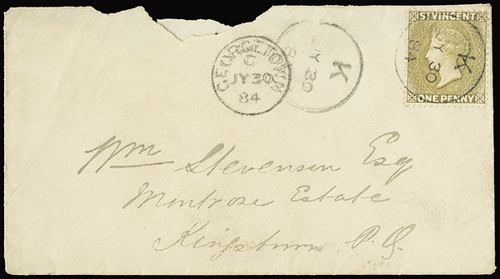 ST VINCENT
ONE PENNY
K
JY 30
84
GEORGETOWN
C
JY 30
84
K
JY 30
8
Wm Stevenson Esq
Montrose Estate
Kingstown P.O.